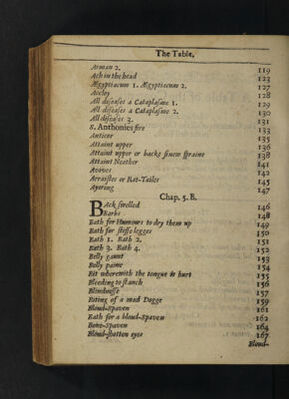 The Table.
Arman 2. 119
Ach in the head 123
Ægyptiacum 1. Ægyptiacum 2. 127
Accloy 128
All diseases a Cataplasme 1. 129
All diseases a Cataplasme 2. 130
All diseases 3. 131
S. Anthonies fire 133
Anticor 135
Attaint upper 136
Attaint upper or backe sinew spraine 138
Attaint Neather 141
Avives 142
Arraistles or Rat-Tailes 145
Ayering 147
Chap. 5. B.
BAck swelled 146
Barbs 148
Bath for Humours to dry them up 149
Bath for stiffe legges 150
Bath 1. Bath 2. 151
Bath 3. Bath 4. 152
Belly gaunt 153
Belly paine 154
Bit wherewith the tongue is hurt 155
Bleeding to stanch 156
Blindnesse 157
Biting of a mad Dogge 159
Bloud-Spaven 161
Bath for a bloud-Spaven 162
Bone-Spaven 164
Bloud-shotten eyes 167
Bloud-